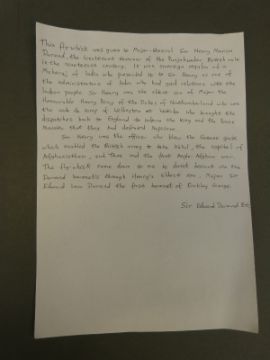 This fly-whisk was given to Major-General Sir Henry Marion
Durand, the lieutenant governor of the Punjab under British rule
in the nineteenth century. It was
Maharaj of India who presented it to Sir Henry as one of
the administrators of India who had good relations with the
Indian people. Sir Henry was the
Honourable Henry Percy of the Dukes of Northumberland who was
the aide de camp of Wellington at Waterloo who brought the
dispatches back to England to inform the King and the Prince
that they had defeated Napoleon.
Sir Henry was the officer who blew the Gates
which enabled the British army to take Kabul, the capital of
Afghanistan, and the first Anglo-Afghan war.
The fly-whisk came down to me by direct descent via the
Durand baronets through Henry's eldest son, Major Sir
Edward Law Durand the first baronet of
Sir Edward Durand